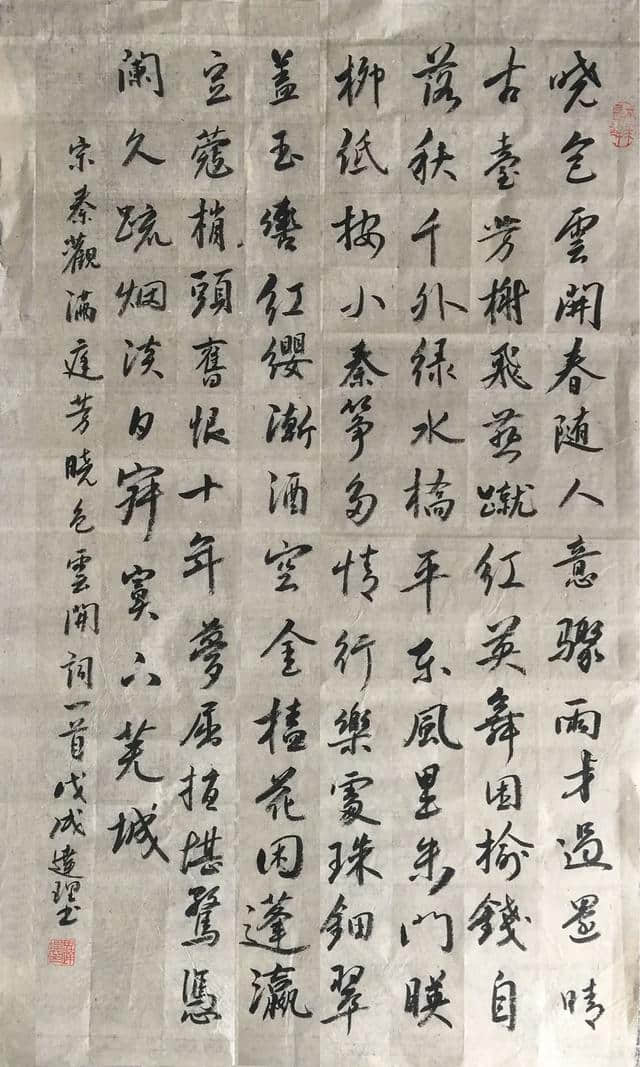 晓色雲開春随人意驟雨才過還晴
古臺芳榭飛燕蹴紅英舞困榆錢自
落秋千外绿水橋平东風里朱門暎
柳低按小秦筝多情行樂處珠鈿翠
盖玉轡红纓漸酒空金榼花困蓬瀛
豆蔻梢頭舊恨十年夢屈指堪驚憑
阑久疏烟淡日寂寞下芜城
宋秦觀滿庭芳晓色雲開詞一首戊戌建理书